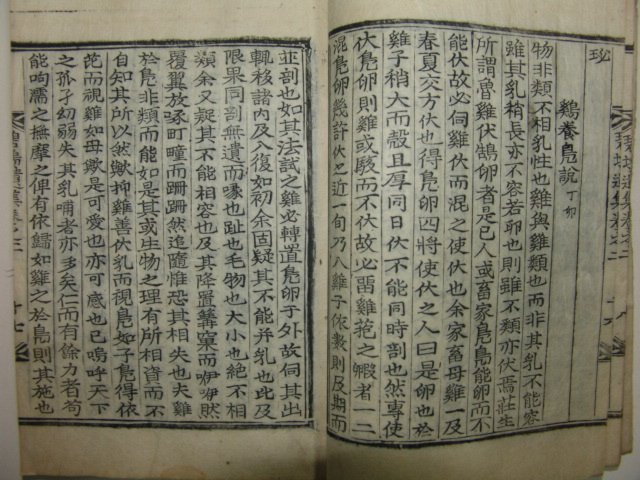 玅
鷄養鳧說 丁卯
物非類不相乳性也雞與雞類也而非其乳不能容
雖其乳稍長亦不容若卵也則雖不類亦伏焉莊生
所謂魯雞伏鵠卵者是已人或畜家鳧鳧能卵而不
能伏故必伺雞伏而混之使伏余家畜母雞一及
春夏交方伏也得鳧卵四將使伏之人曰是卵也於
雞子稍大而殼且厚同日伏不能同時剖也然專使
伏鳧卵則雞或駭而不伏故必畱雞菢之毈者一二
混鳧卵幾許伏之近一旬乃入雞子依數則及期而
並剖也如其法試之雞必轉置鳧卵子外故伺其出
輒移諸內及入復如初余固疑其不能并乳也此及
限果同剖無遺而喙也趾也毛物也大小也絶不相
類余又疑其不能相容也及其降置篝粟而咿咿然
覆翼放啄町疃而跚跚然追隨惟恐其相失也夫雞
於鳧非類而能如是其或生物之理有所相資而不
自知其所以然歟抑雞善伏乳而視鳧如子鳧得依
芘而視雞如母歟是可愛也亦可感也已嗚呼天下
之孤孑幼弱失其乳哺者亦多矣仁而有餘力者苟
能呴濡之撫摩之俾有依歸如雞之於鳧則其施也